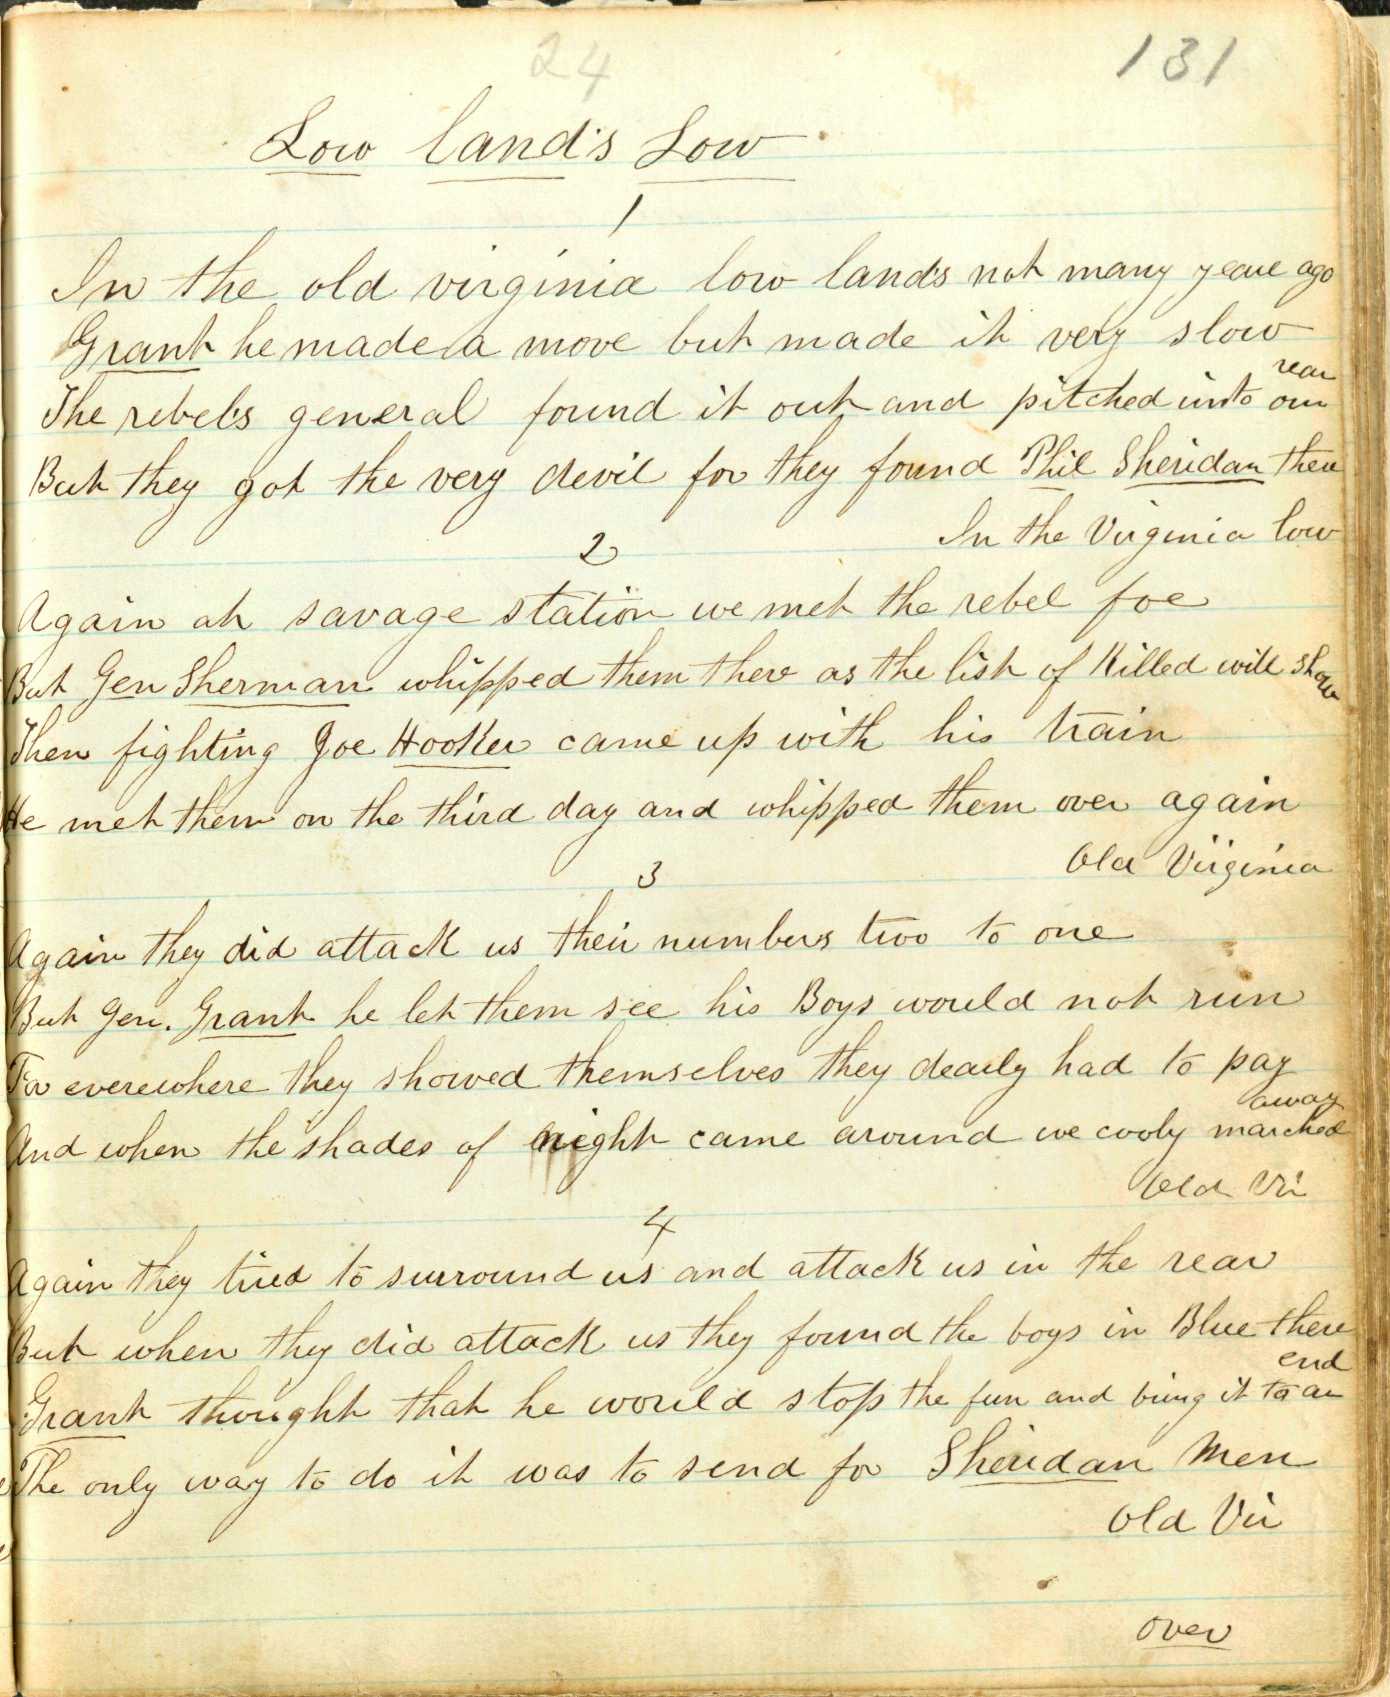 24
131
Low land's Low
1
In the old virginia low land's not many yeare ago
Grant he made a move but made it very slow
The rebel's general found it out and pitched into our rear
But they got the very devil for they found Phil Sheridan there
In the Virginia low
2
Again at savage station we met the rebel foe
But Gen Sherman whipped them there as the list of Killed will show
Then fighting Joe Hooker came up with his train
He met them on the third day and whipped them over again
Old Virginia
3
Again they did attack us their numbers two to one
But Gen. Grant he let them see his Boys would not run
For everewhere they showed themselves they dearly had to pay
And when the shades of night came around we cooly marched away
Old Vir
4
Again they tried to surround us and attack us in the rear
But when they did attack us they found the boys in Blue there
Grant thought that he would stop the fun and bring it to an end
The only way to do it was to send for Sheridan Men
Old Vir
over